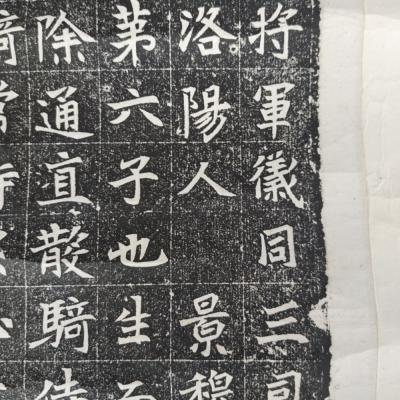 將軍儀同三司
洛陽人 景穆
第六子也生而
除通直散騎侍
騎常侍